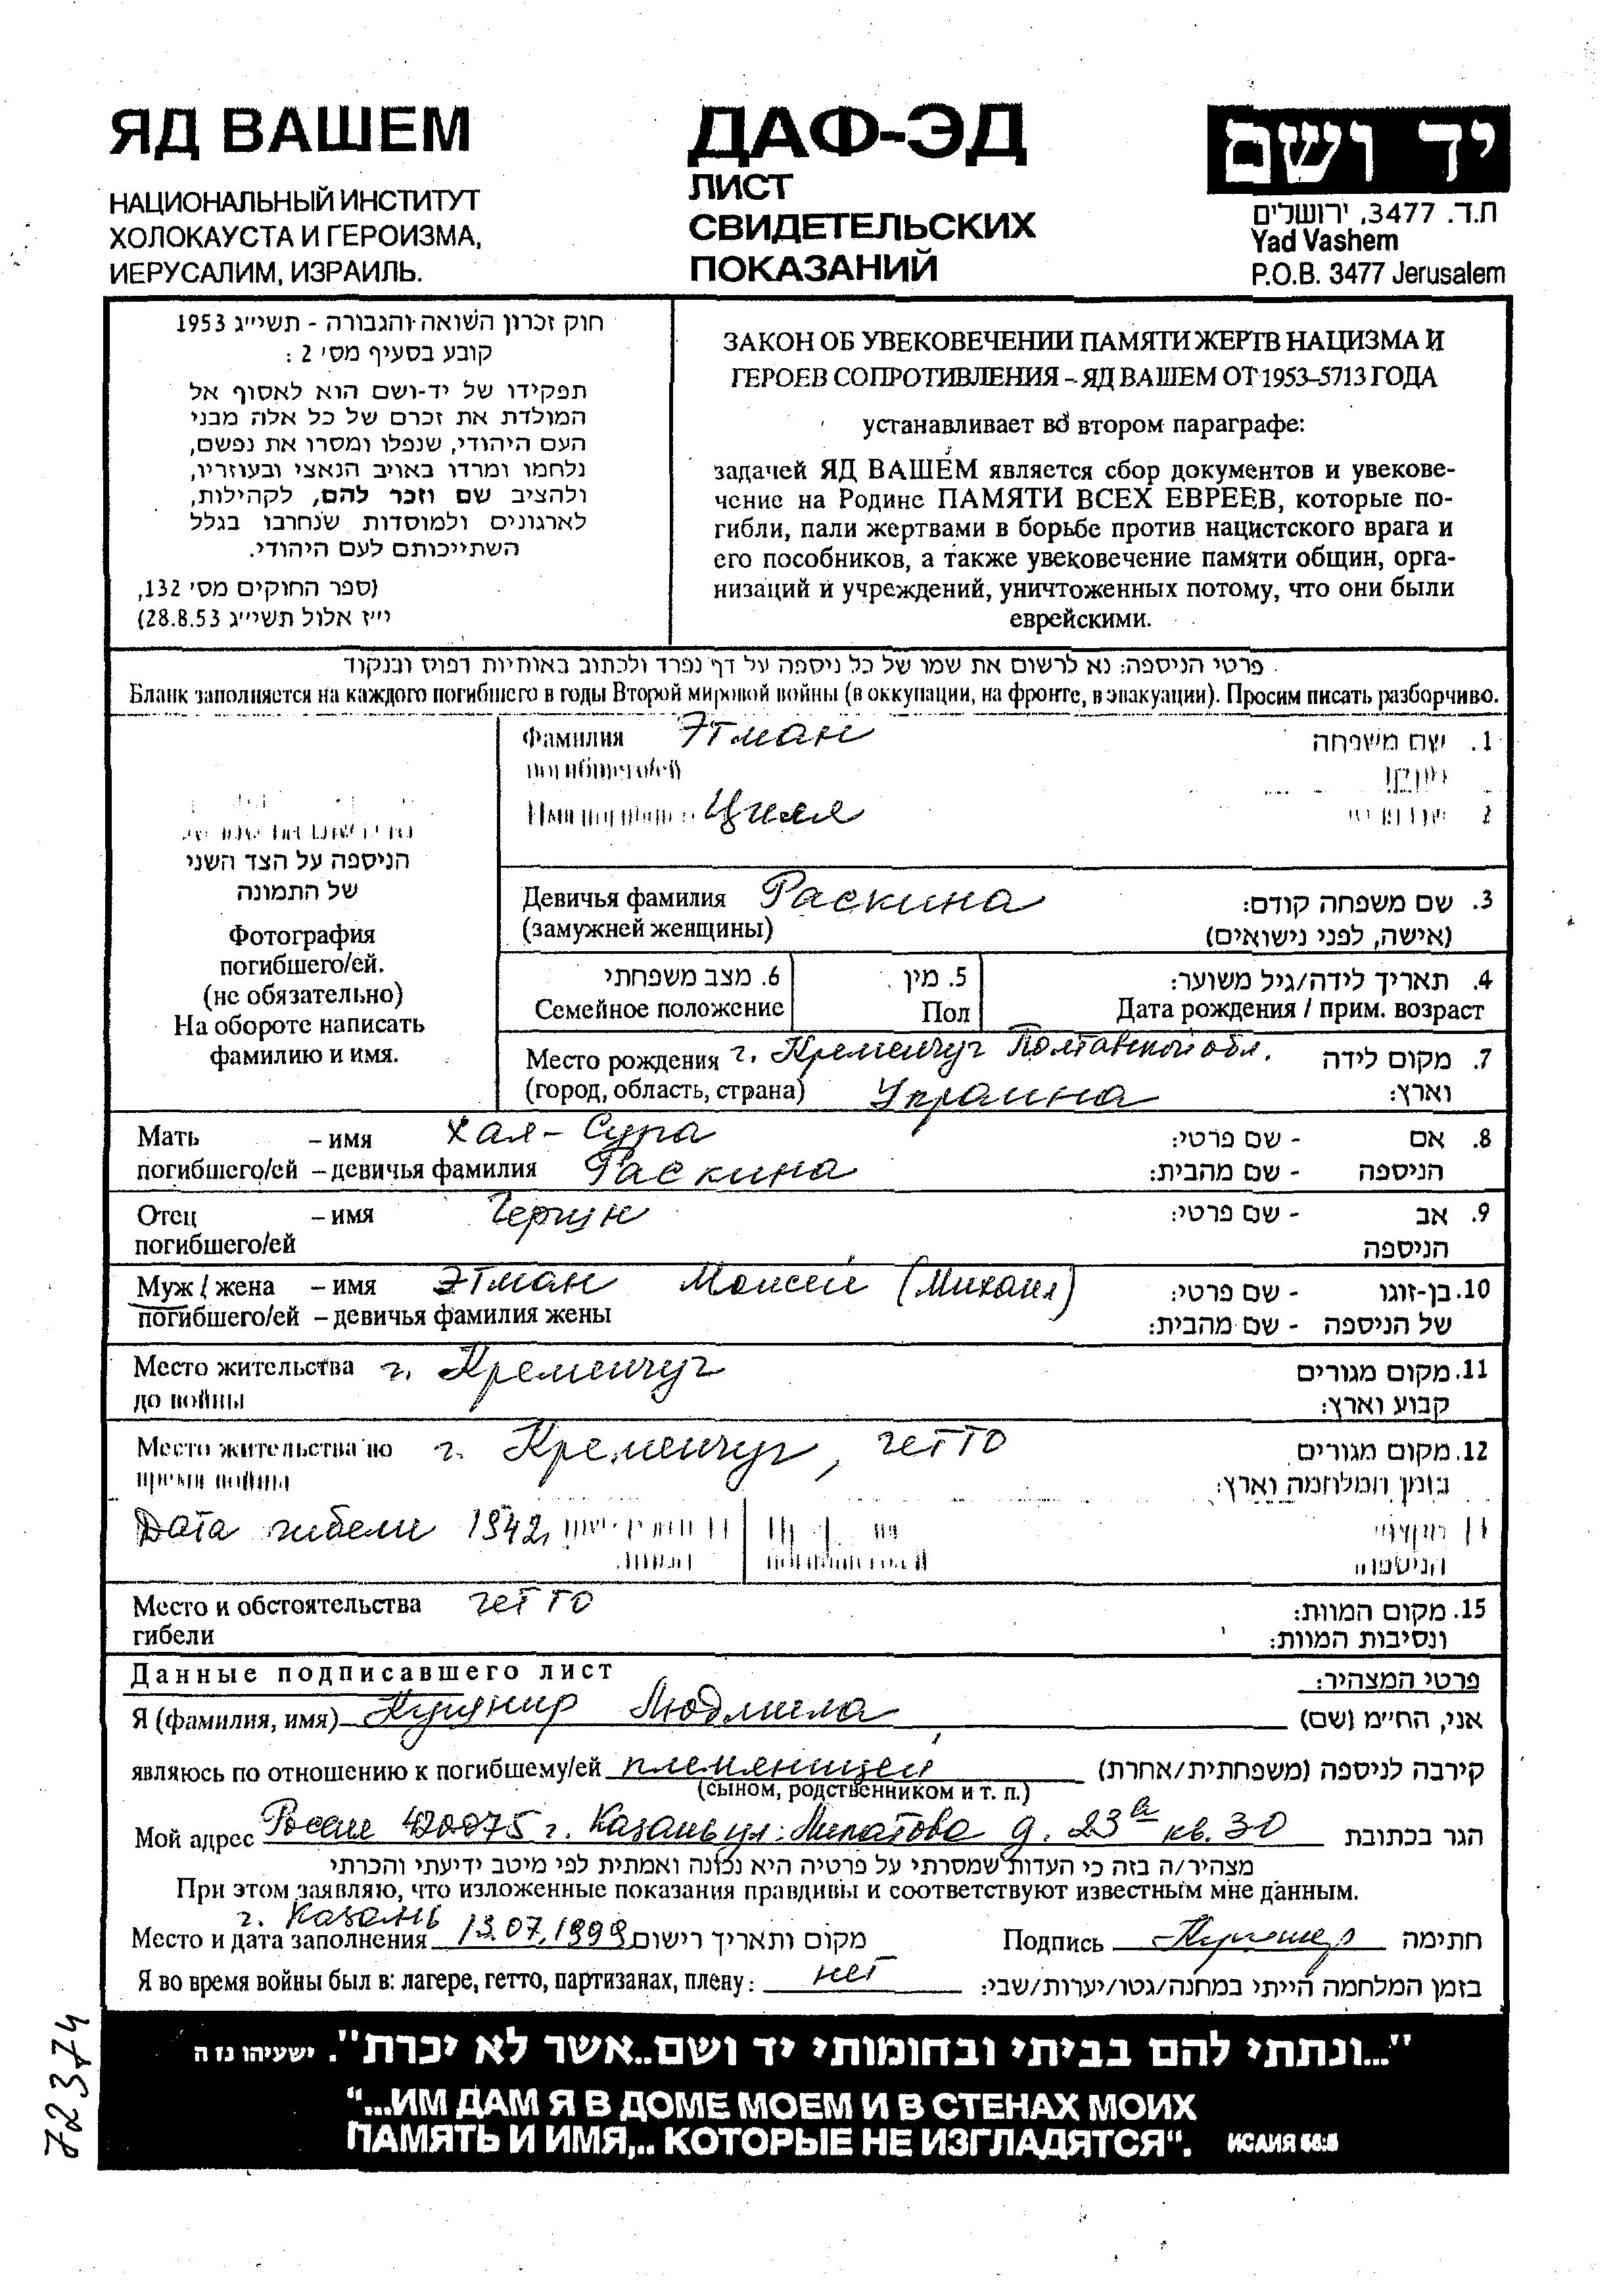 ЯД ВАШЕМ
НАЦИОНАЛЬНЫЙ ИНСТИТУТ
ХОЛОКАУСТА И ГЕРОИЗМА,
ИЕРУСАЛИМ, ИЗРАИЛЬ.
ДАФ-ЭД
ЛИСТ
СВИДЕТЕЛЬСКИХ
ПОКАЗАНИЙ
יד ושם
ת.ד. 3477, ירושלים
Yad Vashem
P.O.B. 3477 Jerusalem
חוק זכרון השואה והגבורה - תשי״ג 1953
קובע בסעיף מס׳ 2 :
תפקידו של יד-ושם הוא לאסוף אל
המולדת את זכרם של כל אלה מבני
העם היהודי, שנפלו ומסרו את נפשם,
נלחמו ומרדו באויב הנאצי ובעוזריו,
ולהציב שם וזכר להם, לקהילות,
לארגונים ולמוסדות שנחרבו בגלל
השתייכותם לעם היהודי.
(ספר החוקים מס׳ 132,
י״ז אלול תשי״ג 28.8.53)
ЗАКОН ОБ УВЕКОВЕЧЕНИИ ПАМЯТИ ЖЕРТВ НАЦИЗМА И
ГЕРОЕВ СОПРОТИВЛЕНИЯ – ЯД ВАШЕМ ОТ 1953–5713 ГОДА
устанавливает во втором параграфе:
задачей ЯД ВАШЕМ является сбор документов и увекове-
чение на Родине ПАМЯТИ ВСЕХ ЕВРЕЕВ, которые по-
гибли, пали жертвами в борьбе против нацистского врага и
его пособников, а также увековечение памяти общин, орга-
низаций и учреждений, уничтоженных потому, что они были
еврейскими.
פרטי הניספה: נא לרשום את שמו של כל ניספה על דף נפרד ולכתוב באותיות דפוס ובנקוד
Бланк заполняется на каждого погибшего в годы Второй мировой войны (в оккупации, на фронте, в эвакуации). Просим писать разборчиво.
הניספה על הצד השני
של התמונה
Фотография
погибшего/ей.
(не обязательно)
На обороте написать
фамилию и имя.
Фамилия Этман 1. שם משפחה
погибшего/ей
Имя Циля 2
Девичья фамилия Раскина 3. שם משפחה קודם:
(замужней женщины) (אישה, לפני נישואים)
6. מצב משפחתי 5. מין 4. תאריך לידה/גיל משוער:
Семейное положение Пол Дата рождения / прим. возраст
Место рождения г. Кременчуг Полтавской обл. 7. מקום לידה
(город, область, страна) Украина וארץ:
Мать – имя Хая-Сура 8. אם - שם פרטי:
погибшего/ей – девичья фамилия Раскина הניספה - שם מהבית:
Отец – имя 9. אב - שם פרטי:
погибшего/ей הניספה
Муж / жена – имя Этман Моисей (Михаил) 10. בן-זוגו - שם פרטי:
погибшего/ей – девичья фамилия жены של הניספה - שם מהבית:
Место жительства г. Кременчуг 11. מקום מגורים
до войны קבוע וארץ:
Место жительства во г. Кременчуг, гетто 12. מקום מגורים
время войны בזמן המלחמה וארץ:
Дата гибели 1942
הניספה
Место и обстоятельства гетто 15. מקום המוות:
гибели ונסיבות המוות:
Данные подписавшего лист פרטי המצהיר:
Я (фамилия, имя) Кушнир Людмила אני, הח״מ (שם)
являюсь по отношению к погибшему/ей племянницей קירבה לניספה (משפחתית/אחרת)
(сыном, родственником и т. п.)
Мой адрес Россия 420075 г. Казань ул. Липатова д. 23а кв. 30 הגר בכתובת
מצהיר/ה בזה כי העדות שמסרתי על פרטיה היא נכונה ואמתית לפי מיטב ידיעתי והכרתי
При этом заявляю, что изложенные показания правдивы и соответствуют известным мне данным.
г. Казань
Место и дата заполнения 13.07.1999 מקום ותאריך רישום Подпись Кушнир חתימה
Я во время войны был в: лагере, гетто, партизанах, плену: нет בזמן המלחמה הייתי במחנה/גטו/יערות/שבי:
72374
"...ונתתי להם בביתי ובחומותי יד ושם..אשר לא יכרת". ישעיהו נו ה
“...ИМ ДАМ Я В ДОМЕ МОЕМ И В СТЕНАХ МОИХ
ПАМЯТЬ И ИМЯ,.. КОТОРЫЕ НЕ ИЗГЛАДЯТСЯ“. ИСАИЯ 56:5